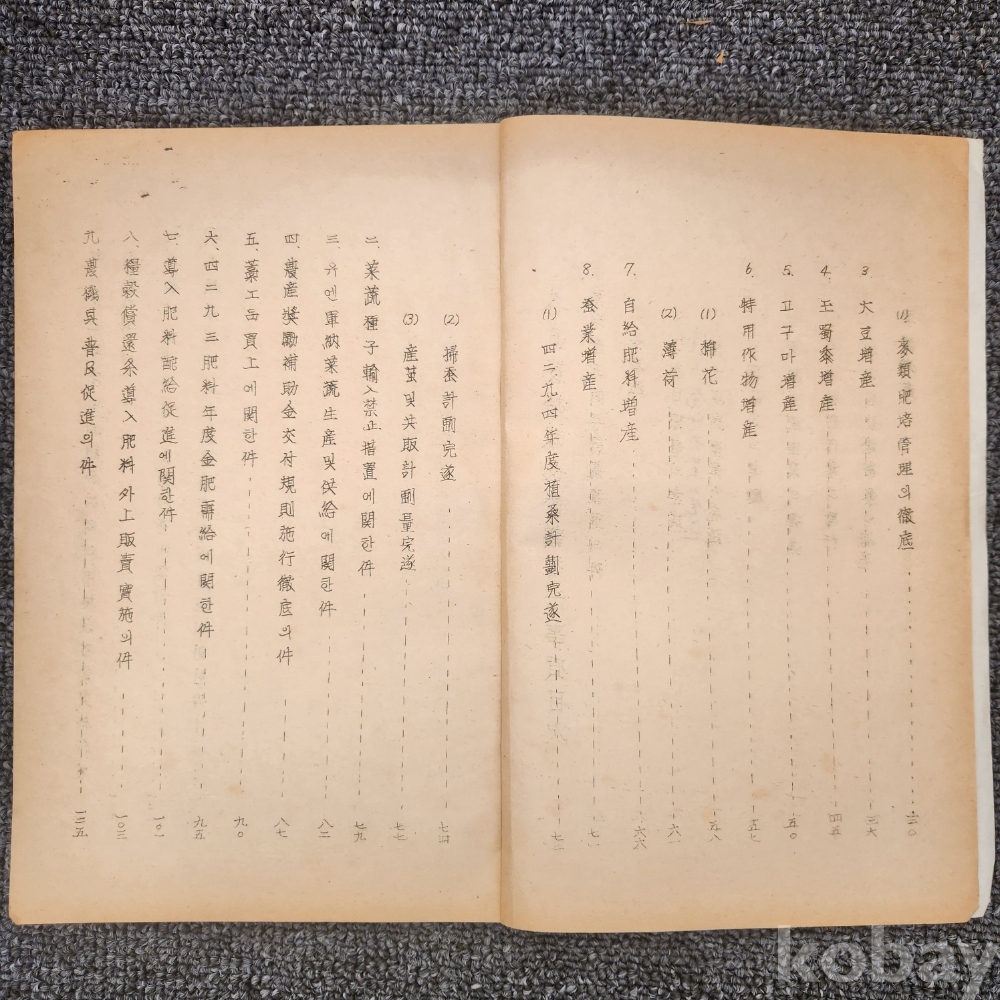 (1) 麥類肥培管理의徹底 三〇
3. 大豆增産 三六
4. 玉蜀黍增産 四五
5. 고구마增産 五〇
6. 特用作物增産 五七
(1) 棉花 五八
(2) 薄荷 六一
7. 自給肥料增産 六六
8. 蚕業增産 七一
(1) 四二九四年度植桑計劃完遂 七二
(2) 掃蚕計劃完遂 七四
(3) 産茧및共販計劃量完遂 七七
二. 菜蔬種子輸入禁止措置에関한件 七九
三. 유엔軍納菜蔬生産및供給에関한件 八二
四. 農産奬勵補助金交付規則施行徹底의件 八七
五. 藁工品買上에関한件 九〇
六. 四二九三肥料年度金肥需給에関한件 九五
七. 導入肥料配給促進에関한件 一〇一
八. 糧穀償還条導入肥料外上販賣實施의件 一〇三
九. 農機具普及促進의件
kobay